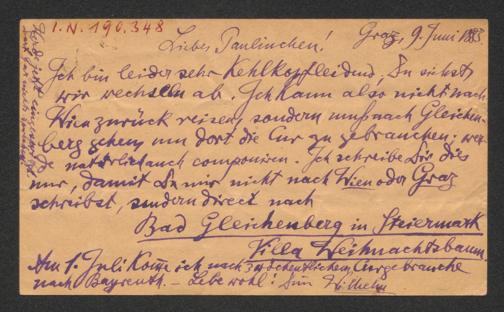 I.N. 190.348
Graz, 9. Juni 1883
Liebes Paulinchen!
Ich bin leider sehr Kehlkopfleidend, Du siehst,
wir wechseln ab. Ich kann also nicht nach
Wien zurück reisen, sondern muß nach Gleichen-
berg gehen, um dort die Cur zu gebrauchen;
natürlich auch componiren. Ich schreibe Dir dies
nur, damit Du mir nicht nach Wien oder Graz
schreibst, sondern direct nach
Bad Gleichenberg in Steiermark
Villa Weihnachtsbaum.
Am 1. Juli komme ich nach 3 wöchentlichem Curgebrauche
nach Bayreuth. – Lebe wohl! Dein Wilhelm